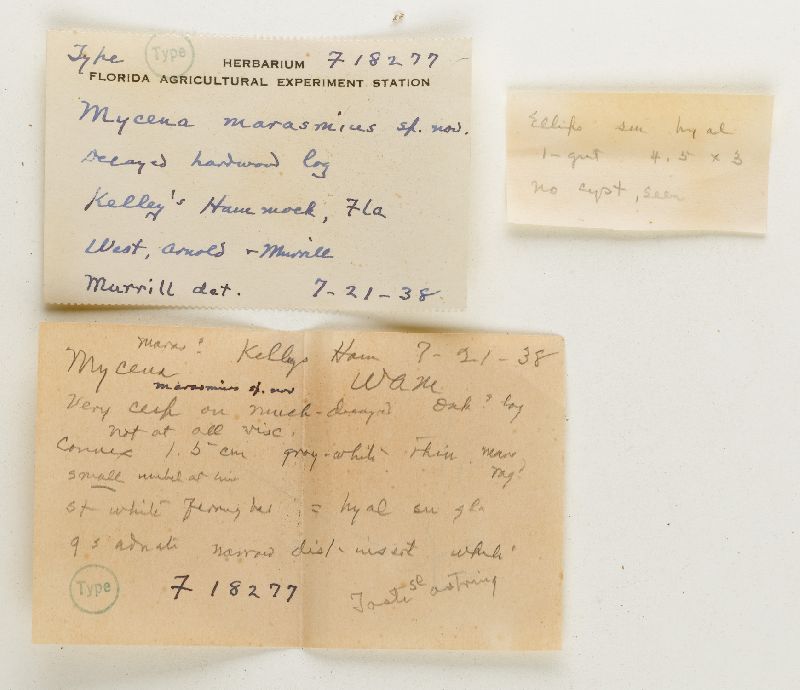 Type Type HERBARIUM F 18277
FLORIDA AGRICULTURAL EXPERIMENT STATION
Mycena marasmius sp. nov.
Decayed hardwood log
Kelley's Hammock, Fla
West, Arnold + Murrill
Murrill det. 7-21-38
Ellips sm hyal
1-gut 4.5 x 3
no cyst, seen
maras? Kelleys Ham 7-21-38
Mycena WAM
marasmius sp. nov
Very cesp on much-decayed Oak? log
not at all visc.
Convex 1.5 cm gray-white thin
small umbil at
st white = hyal sm gla
g s adnate narrow dist-insert white
Type F 18277 Taste sl astring